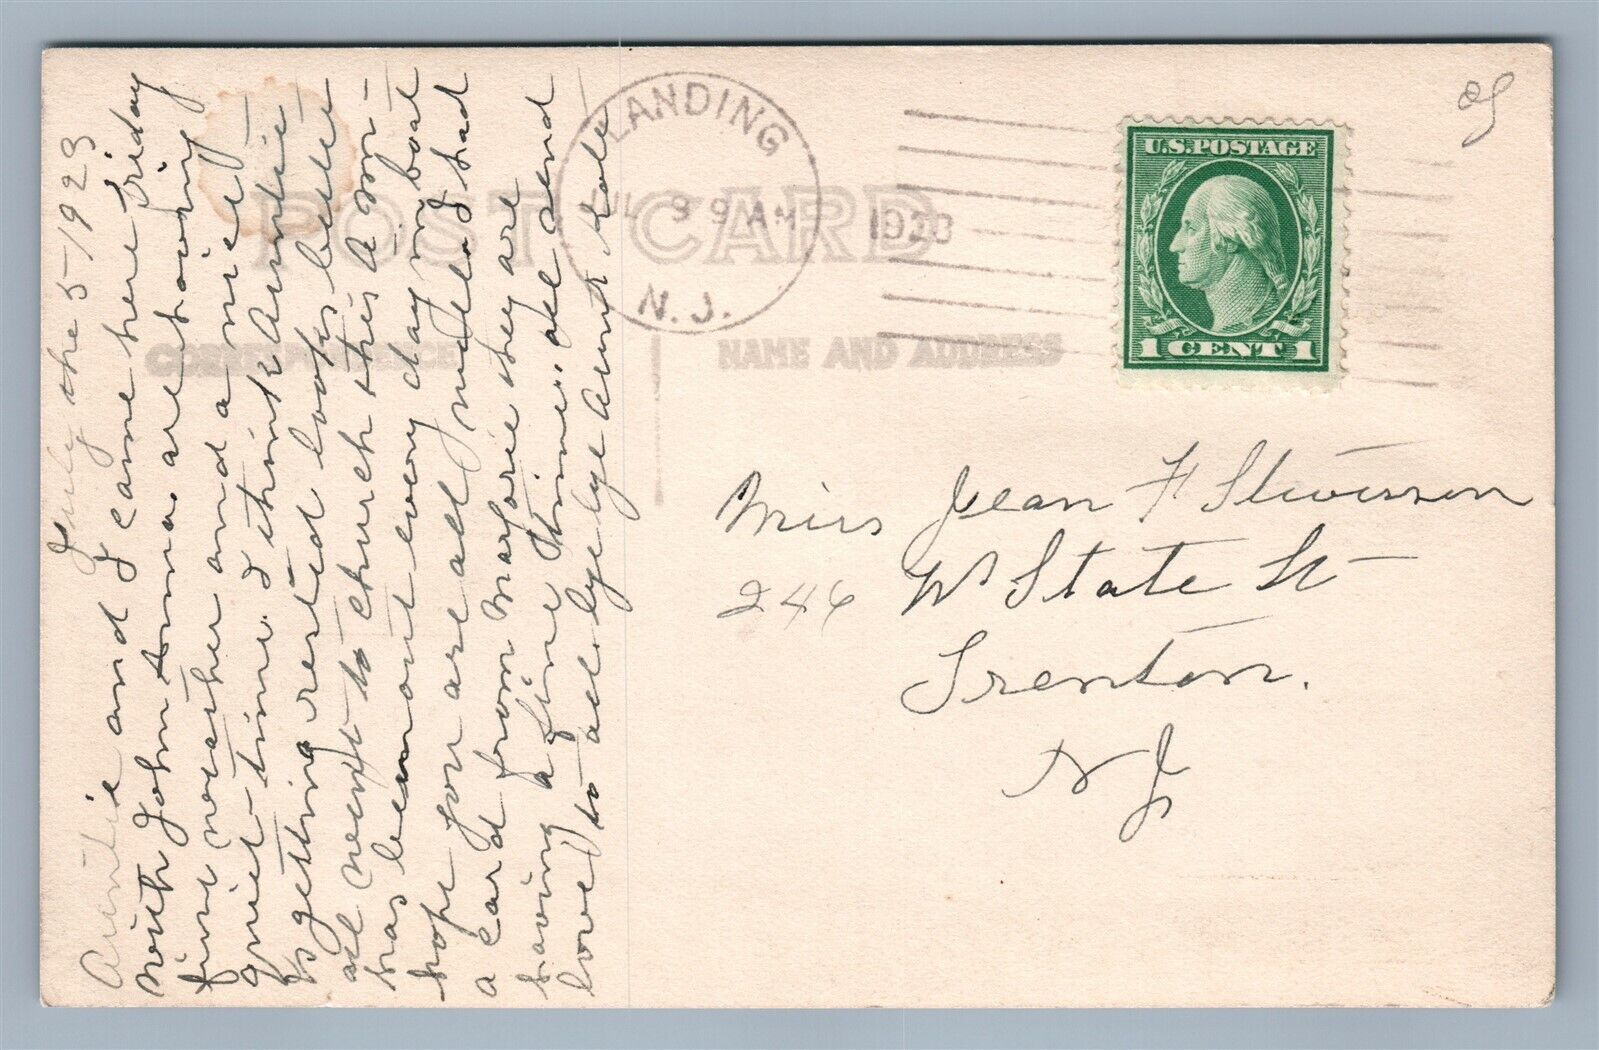 July the 5-1923
Auntie and I came here Friday
with John & Anna. are having
fine weather and a nice
quiet-time. I think Auntie
is getting rested looks better
all went to church this A.M.-
has been out every day in boat
hope you are all well. I had
a card from Marjorie they are
having a fine time. all send
love to all. bye bye Aunt
POST CARD
CORRESPONDENCE
NAME AND ADDRESS
LANDING
JUL 9 9 AM
1923
N.J.
U.S. POSTAGE
1 CENT 1
Miss Jean F Stevenson
246 W State St
Trenton.
N J